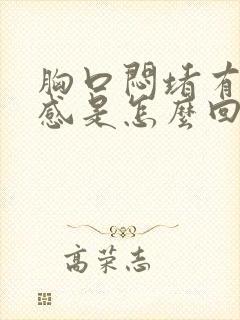 胸口悶堵有
感是怎麼回
高荣志